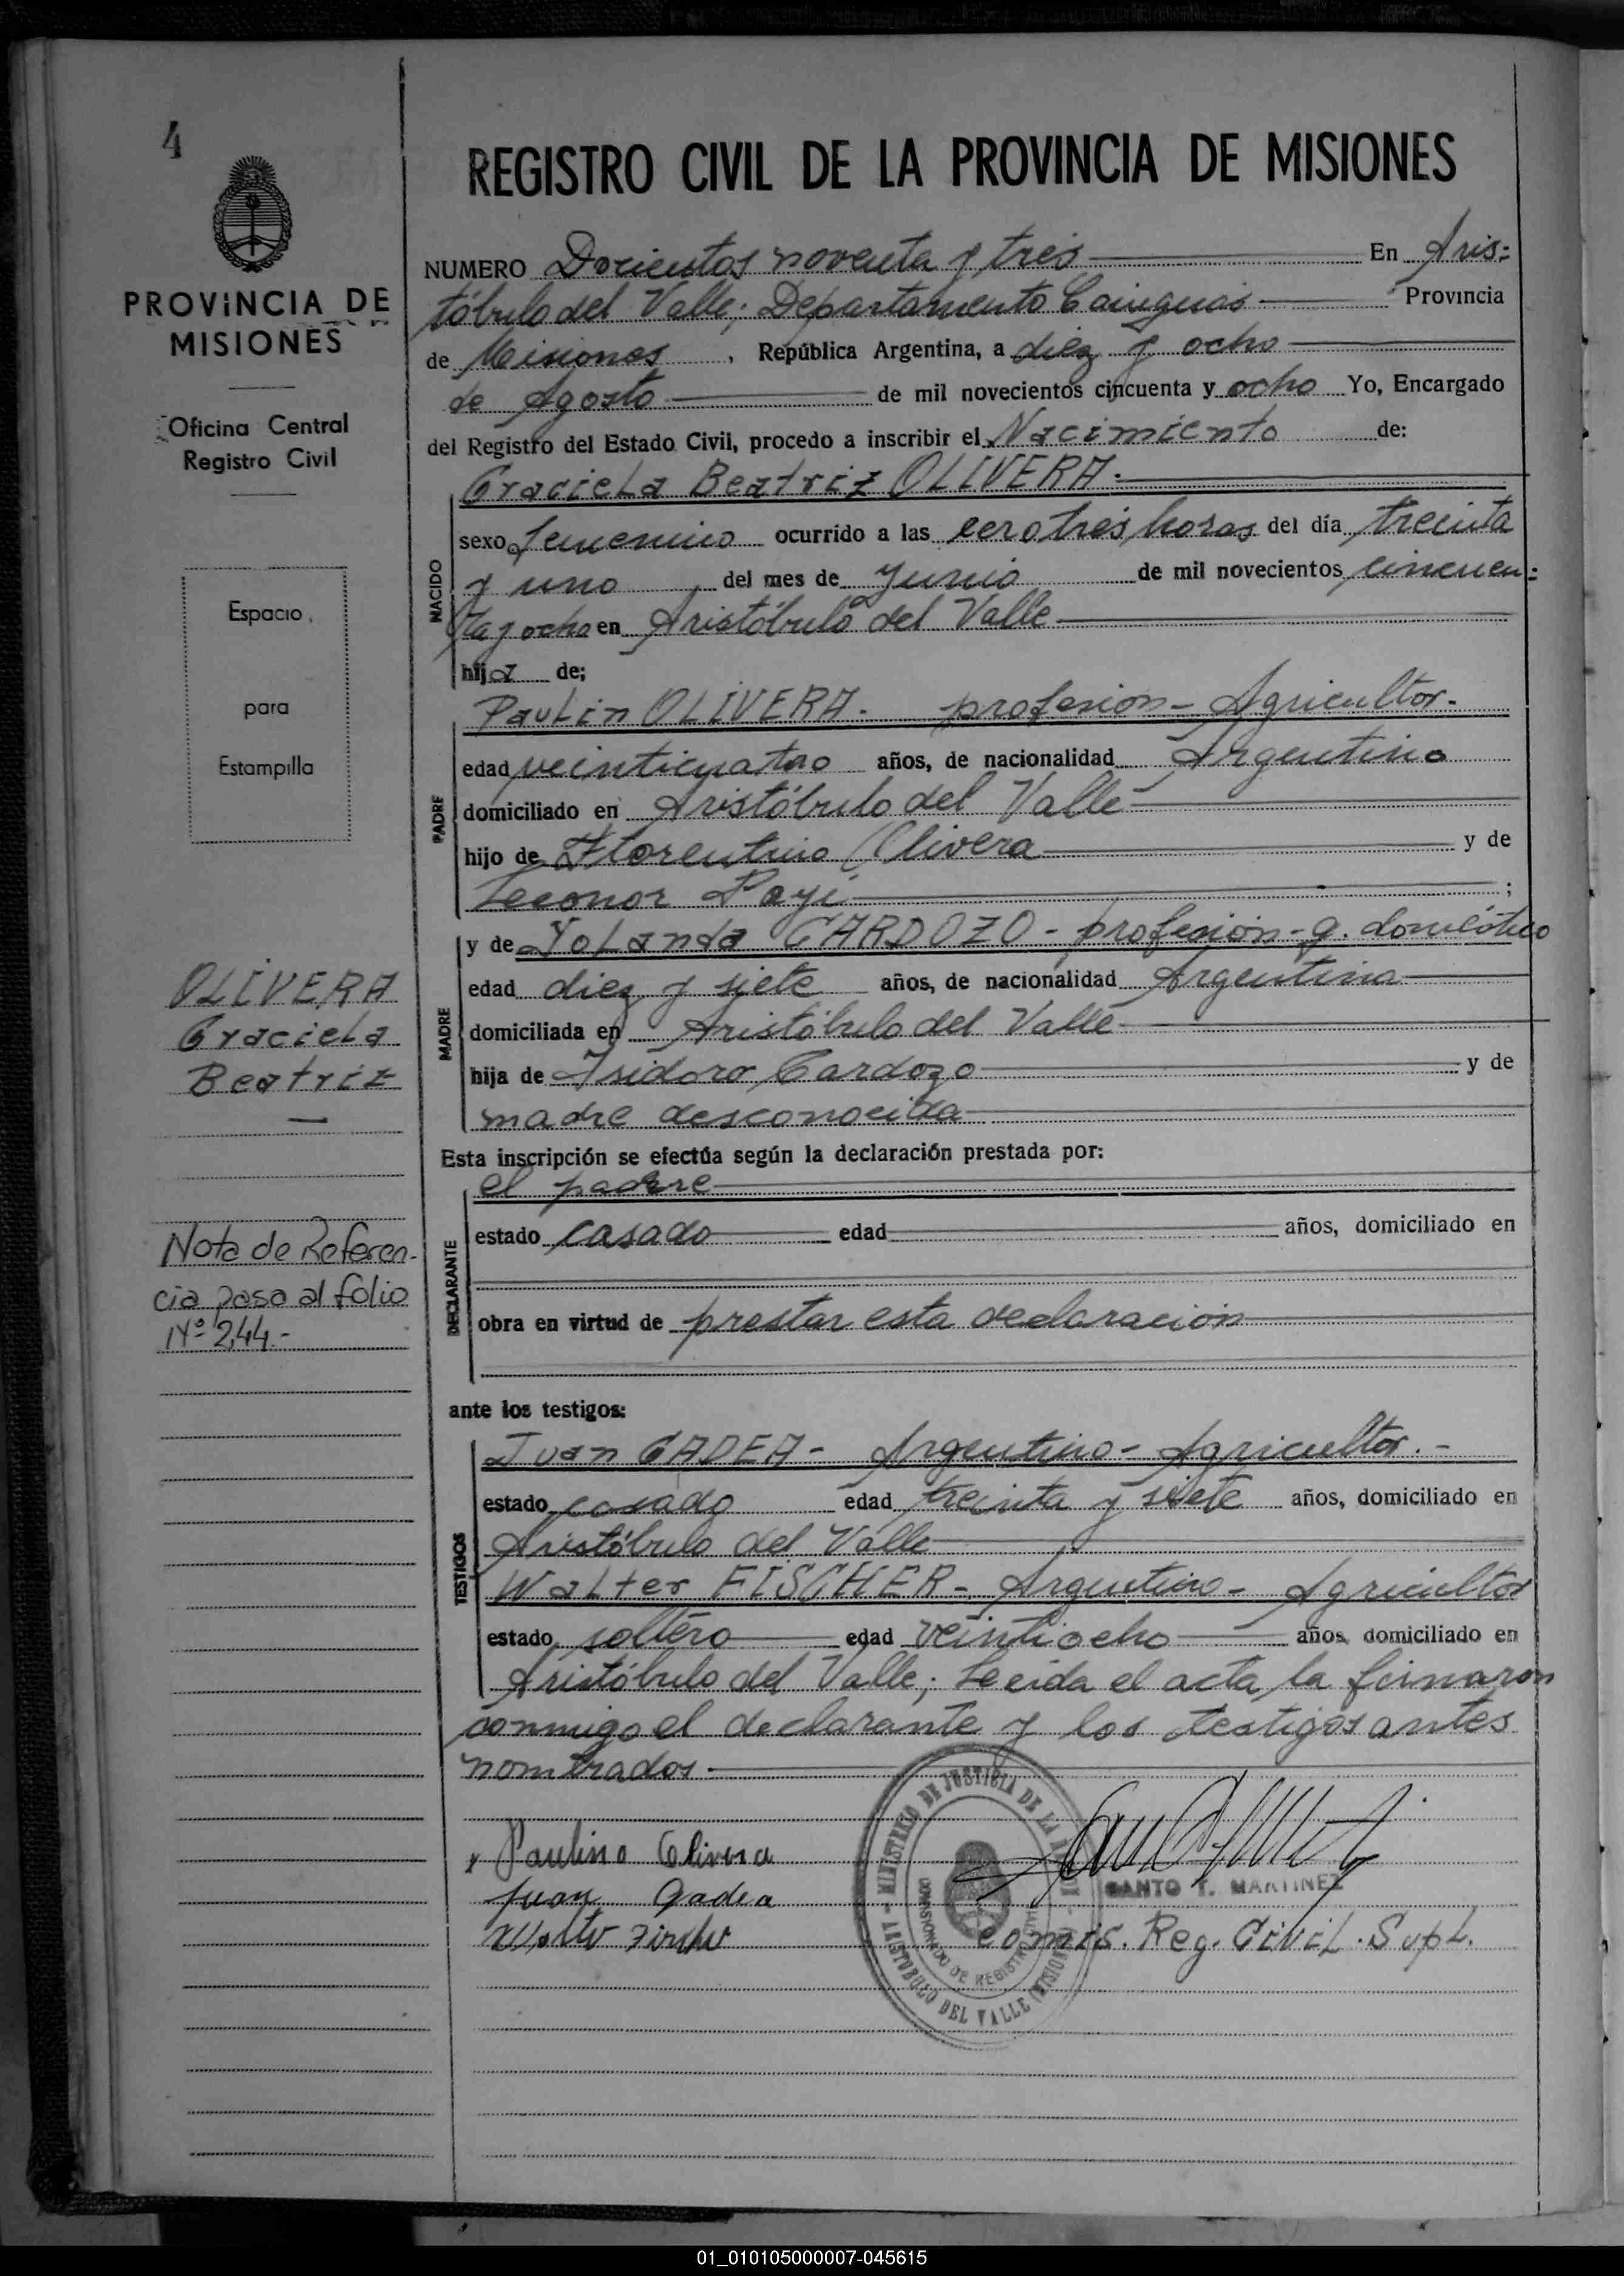 4
PROVINCIA DE
MISIONES
Oficina Central
Registro Civil
Espacio
para
Estampilla
OLIVERA
Graciela
Beatriz
Nota de Referen-
cia pasa al folio
Nº 244.-
REGISTRO CIVIL DE LA PROVINCIA DE MISIONES
NUMERO Docientos noventa y tres En Aris=
tóbulo del Valle; Departamento Cainguás Provincia
de Misiones, República Argentina, a diez y ocho
de Agosto de mil novecientos cincuenta y ocho Yo, Encargado
del Registro del Estado Civil, procedo a inscribir el Nacimiento de:
Graciela Beatriz OLIVERA.
NACIDO
sexo femenino ocurrido a las cero tres horas del día treinta
y uno del mes de Junio de mil novecientos cincuen=
ta y ocho en Aristóbulo del Valle
hija de;
Paulin OLIVERA. profesión - Agricultor.
PADRE
edad veinticuatro años, de nacionalidad Argentino
domiciliado en Aristóbulo del Valle
hijo de Florentino Olivera y de
Leonor Payi ;
y de Yolanda CARDOZO - profesión - q. doméstico
MADRE
edad diez y siete años, de nacionalidad Argentina
domiciliada en Aristóbulo del Valle
hija de Isidoro Cardozo y de
madre desconocida
Esta inscripción se efectúa según la declaración prestada por:
el padre
DECLARANTE
estado casado edad años, domiciliado en
obra en virtud de prestar esta declaración
ante los testigos:
Juan GADEA - Argentino - Agricultor. -
TESTIGOS
estado casado edad treinta y siete años, domiciliado en
Aristóbulo del Valle
Walter FISCHER - Argentino - Agricultor
estado soltero edad veintiocho años, domiciliado en
Aristóbulo del Valle; Leida el acta la firmaron
conmigo el declarante y los testigos antes
nombrados.
Paulino Olivera
Juan Gadea
SANTO T. MARTINEZ
Comis. Reg. Civil. Supl.
MINISTERIO DE JUSTICIA DE LA
ARISTOBULO DEL VALLE
01_010105000007-045615